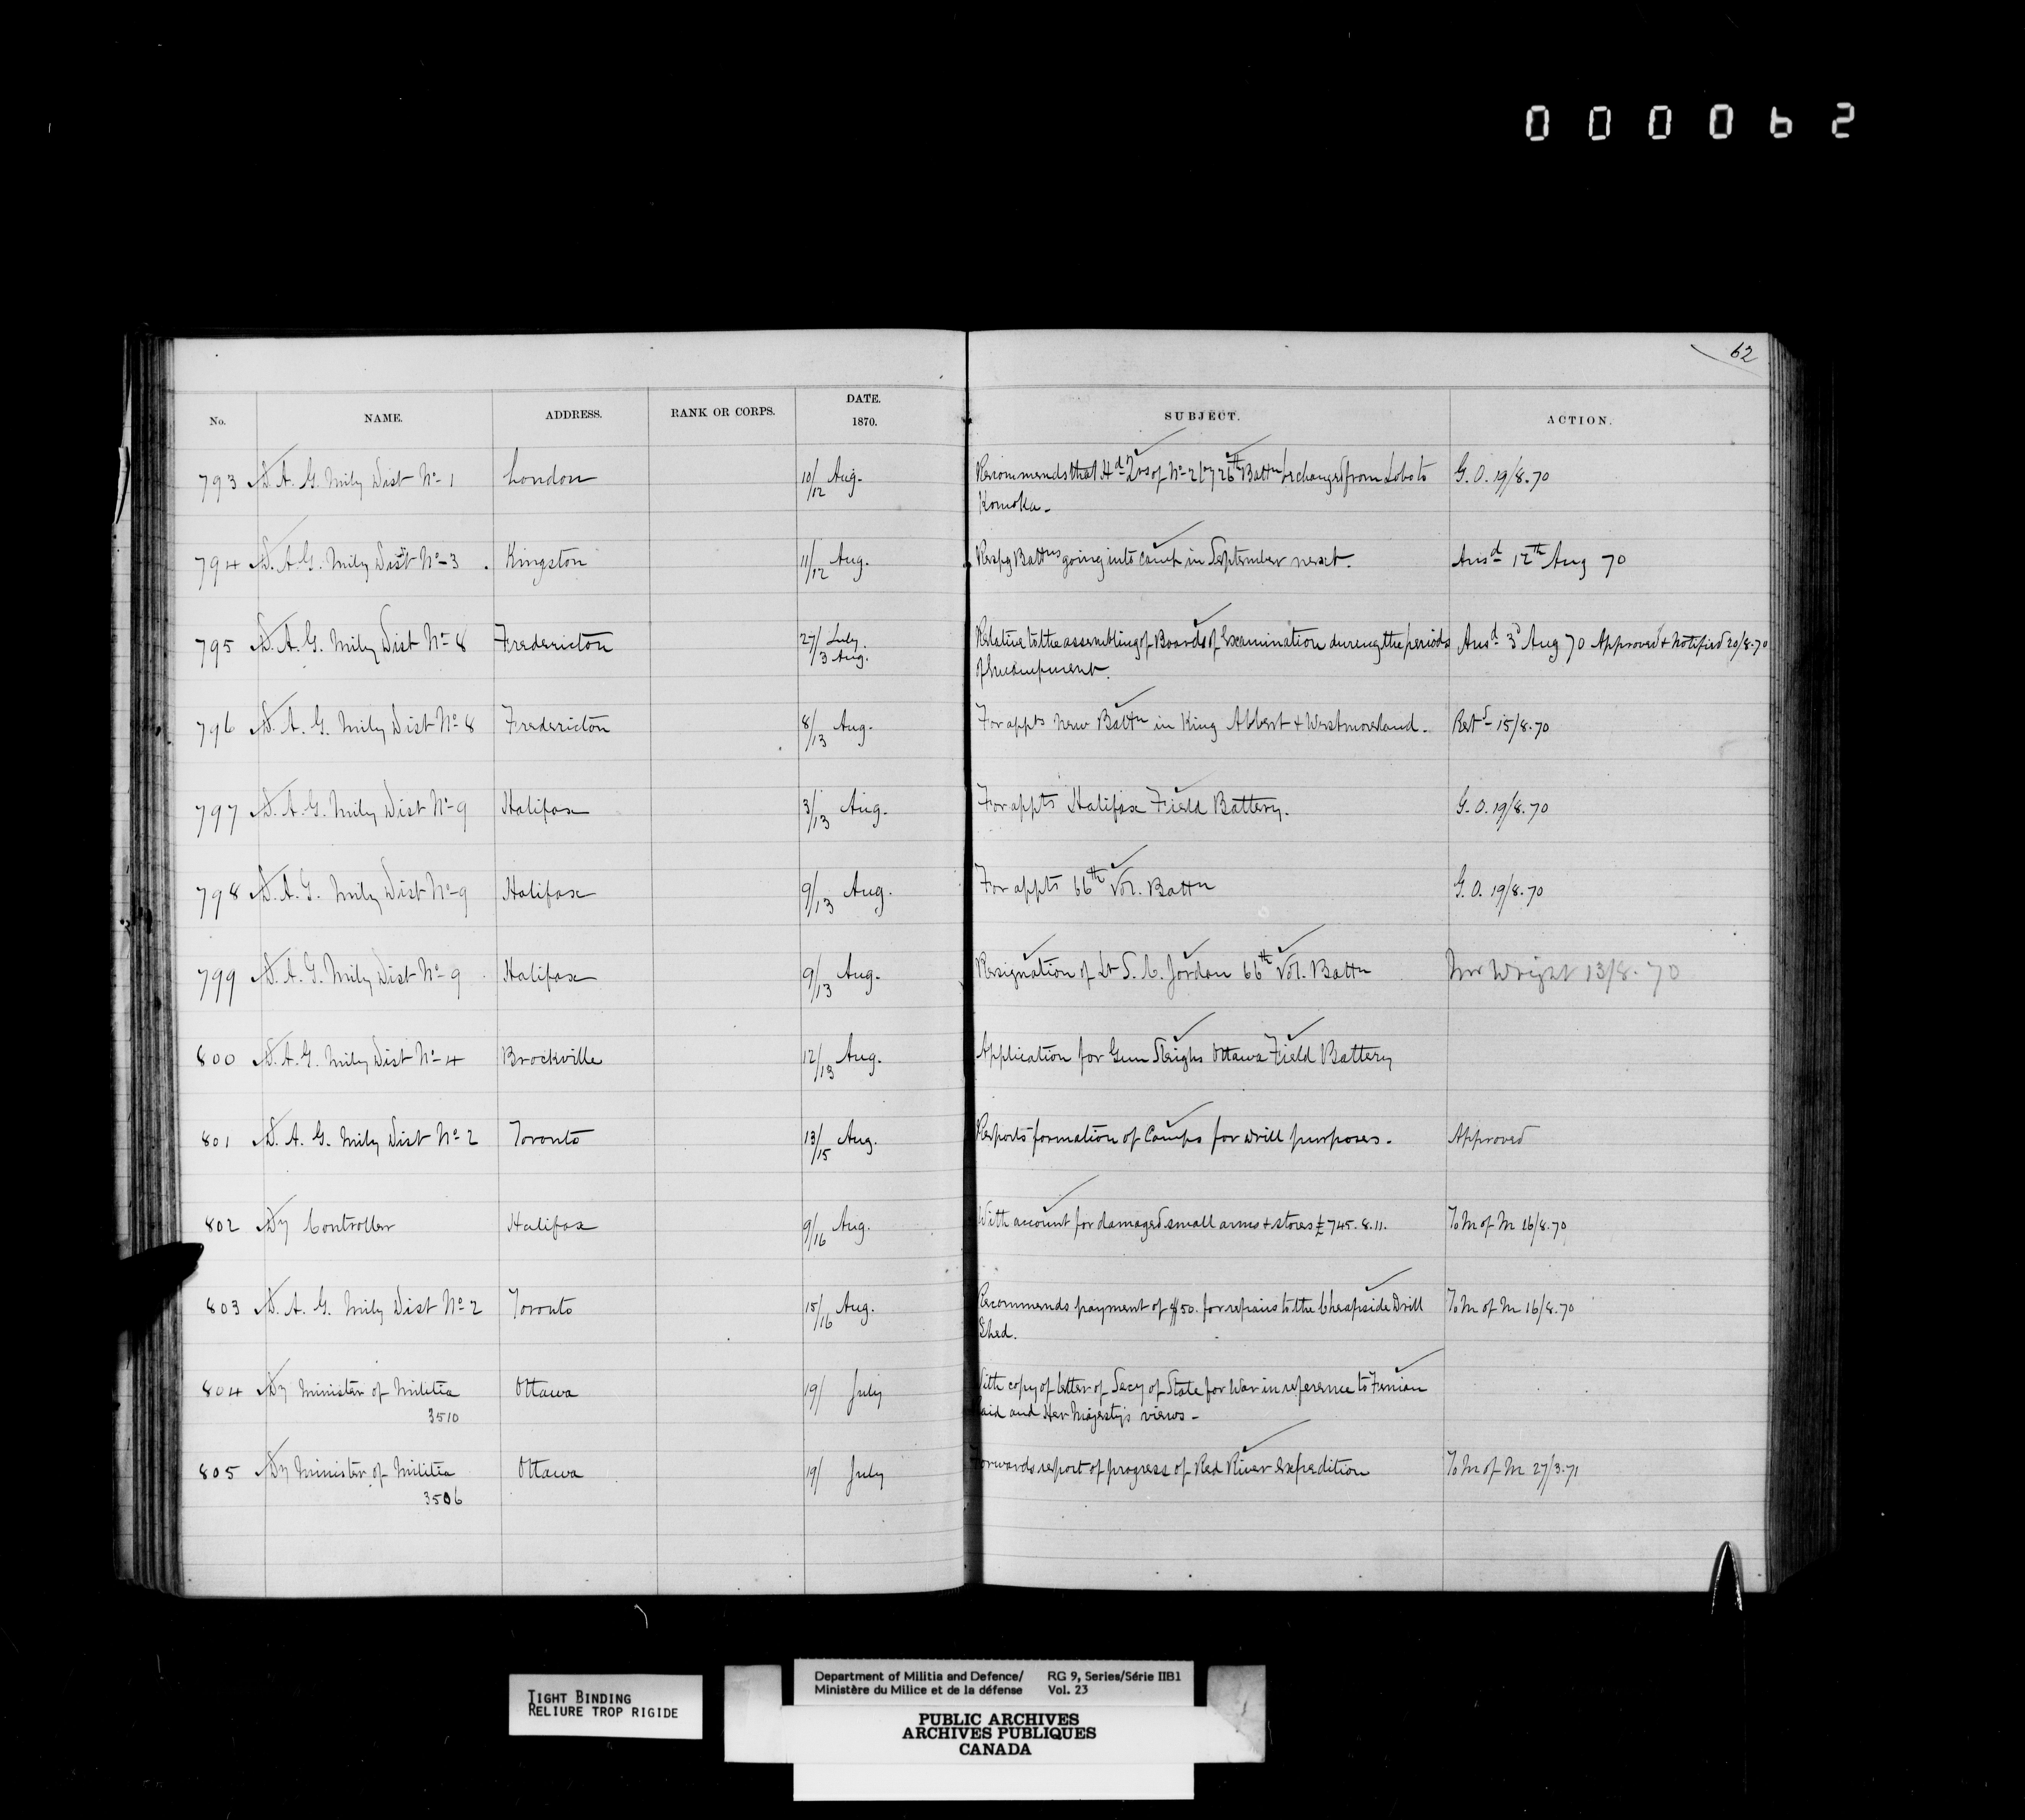 000062
62
No. NAME. ADDRESS. RANK OR CORPS. DATE. 1870. SUBJECT. ACTION.
793 D. A. G. Mily Dist No- 1 London 10/12 Aug. Recommends that Hd Qrs of No- 2 Coy 26th Battn be changed from Lobo to G. O. 19/8.70
Komoka -
794 D. A. G. Mily Dist No- 3 Kingston 11/12 Aug. Respg Battns going into Camp in September next. Ansd 12th Aug 70
795 D. A. G. Mily Dist No- 8 Fredericton 27/ July 3 Aug. Relative to the assembling of Boards of Examination during the periods Ansd 3d Aug 70 Approved & Notified 20/8.70
of Encampment.
796 D. A. G. Mily Dist No- 8 Fredericton 8/13 Aug. For appts new Battn in King Albert & Westmoreland. Retd 15/8.70
797 D. A. G. Mily Dist No- 9 Halifax 3/13 Aug. For appts Halifax Field Battery. G. O. 19/8.70
798 D. A. G. Mily Dist No- 9 Halifax 9/13 Aug. For appts 66th Vol. Battn G. O. 19/8.70
799 D. A. G. Mily Dist No- 9 Halifax 9/13 Aug. Resignation of Lt S. C. Jordan 66th Vol. Battn Mr Wright 13/8.70
800 D. A. G. Mily Dist No- 4 Brockville 12/13 Aug. Application for Gun Sleighs Ottawa Field Battery
801 D. A. G. Mily Dist No- 2 Toronto 13/15 Aug. Reports formation of Camps for drill purposes. Approved
802 Dy Controller Halifax 9/16 Aug. With account for damaged small arms & stores £745.8.11. To M of M 16/8.70
803 D. A. G. Mily Dist No- 2 Toronto 15/16 Aug. Recommends payment of $50. for repairs to the Cheapside Drill To M of M 16/8.70
Shed.
804 Dy Minister of Militia Ottawa 19/ July With copy of letter of Secy of State for War in reference to Fenian
3510 raid and Her Majesty's views -
805 Dy Minister of Militia Ottawa 19/ July Forwards report of progress of Red River Expedition To M of M 27/3.71
3506
TIGHT BINDING
RELIURE TROP RIGIDE
Department of Militia and Defence/ RG 9, Series/Série IIB1
Ministère du Milice et de la défense Vol. 23
PUBLIC ARCHIVES
ARCHIVES PUBLIQUES
CANADA